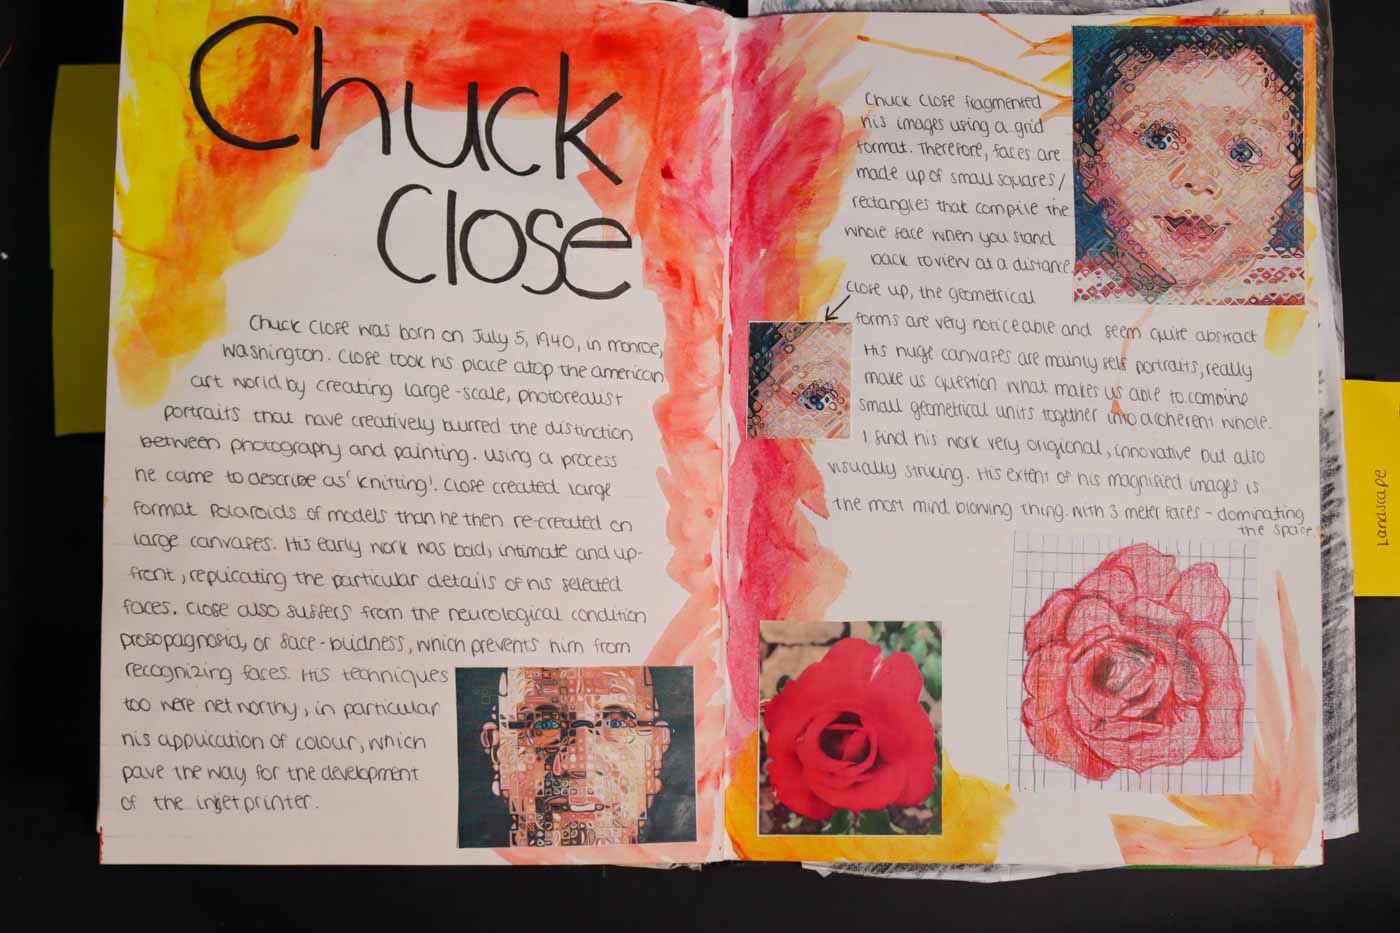 Chuck
Close
Chuck Close was born on July 5, 1940, in monroe,
Washington. Close took his place atop the american
art world by creating large-scale, photorealist
portraits that have creatively blurred the distinction
between photography and painting. using a process
he came to describe as 'knitting'. Close created large
format Polaroids of models than he then re-created on
large canvases. His early work was bold, intimate and up-
front, replicating the particular details of his selected
faces. Close also suffers from the neurological condition
prosopagnosia, or face-blidness, which prevents him from
recognizing faces. His techniques
too were net worthy, in particular
his application of colour, which
pave the way for the development
of the inkjet printer.
Chuck Close fragmented
his images using a grid
format. Therefore, faces are
made up of small squares/
rectangles that compile the
whole face when you stand
back to view at a distance
Close up, the geometrical
forms are very noticeable and seem quite abstract
His huge canvases are mainly self portraits, really
make us question what makes us able to combine
small geometrical units together into a coherent whole.
I find his work very original, innovative but also
visually striking. His extent of his magnified images is
the most mind blowing thing. With 3 meter faces - dominating
the space.
Landscape